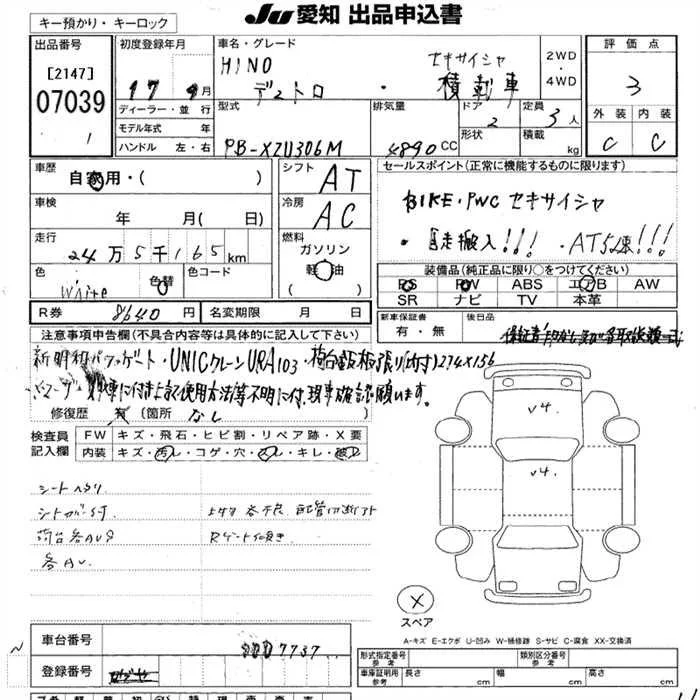 キー預かり・キーロック
JU愛知 出品申込書
出品番号
[2147]
07039
1
初度登録年月
17 9月
ディーラー・並行
モデル年式 年
ハンドル 左・右
車名・グレード
HINO
デュトロ
セキサイシャ
積載車
2WD
4WD
型式
PB-XZU306M
排気量
4890CC
ドア
2
形状
定員
3人
積載
kg
評価点
3
外装 内装
C C
車歴
自家用・( )
車検
年 月(日)
走行
24万5千165km
色
White
色替
色コード
シフト
AT
冷房
AC
燃料
ガソリン
軽油
( )
セールスポイント(正常に機能するものに限ります)
BIKE・PWC セキサイシャ
・自走搬入!!!・AT5速!!!
装備品(純正品に限り○をつけてください)
PS PW ABS エアB AW
SR ナビ TV 本革
R券 8640円 名変期限 月 日
新車保証書
有・無
後日品
注意事項申告欄(不具合内容等は具体的に記入して下さい)
UNICクレーンURA103・荷台鉄板張り(内寸)274×156
使用方法等不明に付、現車確認お願います。
修復歴 有 (箇所 なし
検査員
記入欄
FW キズ・飛石・ヒビ割・リペア跡・X要
内装 キズ・汚レ・コゲ・穴・スレ・キレ・破レ
シートヘタリ
荷台各AU9
各AU.
V4.
V4.
スペア
A-キズ E-エクボ U-凹み W-補修跡 S-サビ C-腐食 XX-交換済
車台番号
7737
登録番号
形式指定番号
参考
類別区分番号
参考
車庫証明用
参考
長さ cm 幅 cm 高さ cm